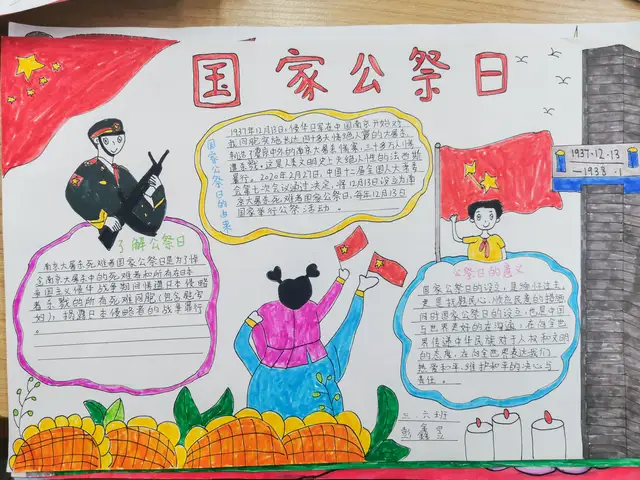 国家公祭日
国家公祭日的由来
1937年12月13日,侵华日军在中国南京开始对
我同胞实施长达四十多天惨绝人寰的大屠杀,
制造了震惊中外的南京大屠杀惨案,三十多万人惨
遭杀戮,这是人类文明史上灭绝人性的法西斯
暴行。2020年2月27日,中国十二届全国人大常
会第七次会议通过决定,将12月13日设立为南
京大屠杀死难者国家公祭日,每年12月13日
国家举行公祭活动。
1937·12·13
1938·1
了解公祭日
南京大屠杀死难者国家公祭日是为了悼
念南京大屠杀中的死难者和所有在日本
帝国主义侵华战争期间惨遭日本侵略
者杀戮的所有死难同胞(包含慰安
妇),揭露日本侵略者的战争罪行。
公祭日的意义
国家公祭日的设立,是缅怀过去,
更是抚慰民心、顺应民意的措施
同时国家公祭日的设立,也是中国
与世界更好的在沟通,在向全世
界传递中华民族对于人权和文明
的态度,在向全世界表达我们
热爱和平,维护和平的决心与
责任。
三.六班
彭鑫